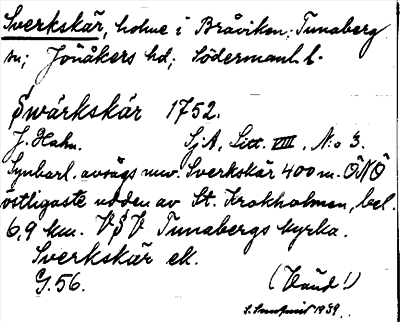 Sverkskär, holme i Bråviken; Tunaberg
sn; Jönåkers hd; Södermanl. l.
Swärkskär 1752.
J. Hahn. SjA, Litt. VIII, N:o 3.
Synbarl. avsågs nuv. Sverkskär 400 m. ÖNÖ
östligaste udden av St. Krokholmen, bel.
6,9 km. VSV Tunabergs kyrka.
Sverkskär ek.
G. 56. (Vänd!)
1939.